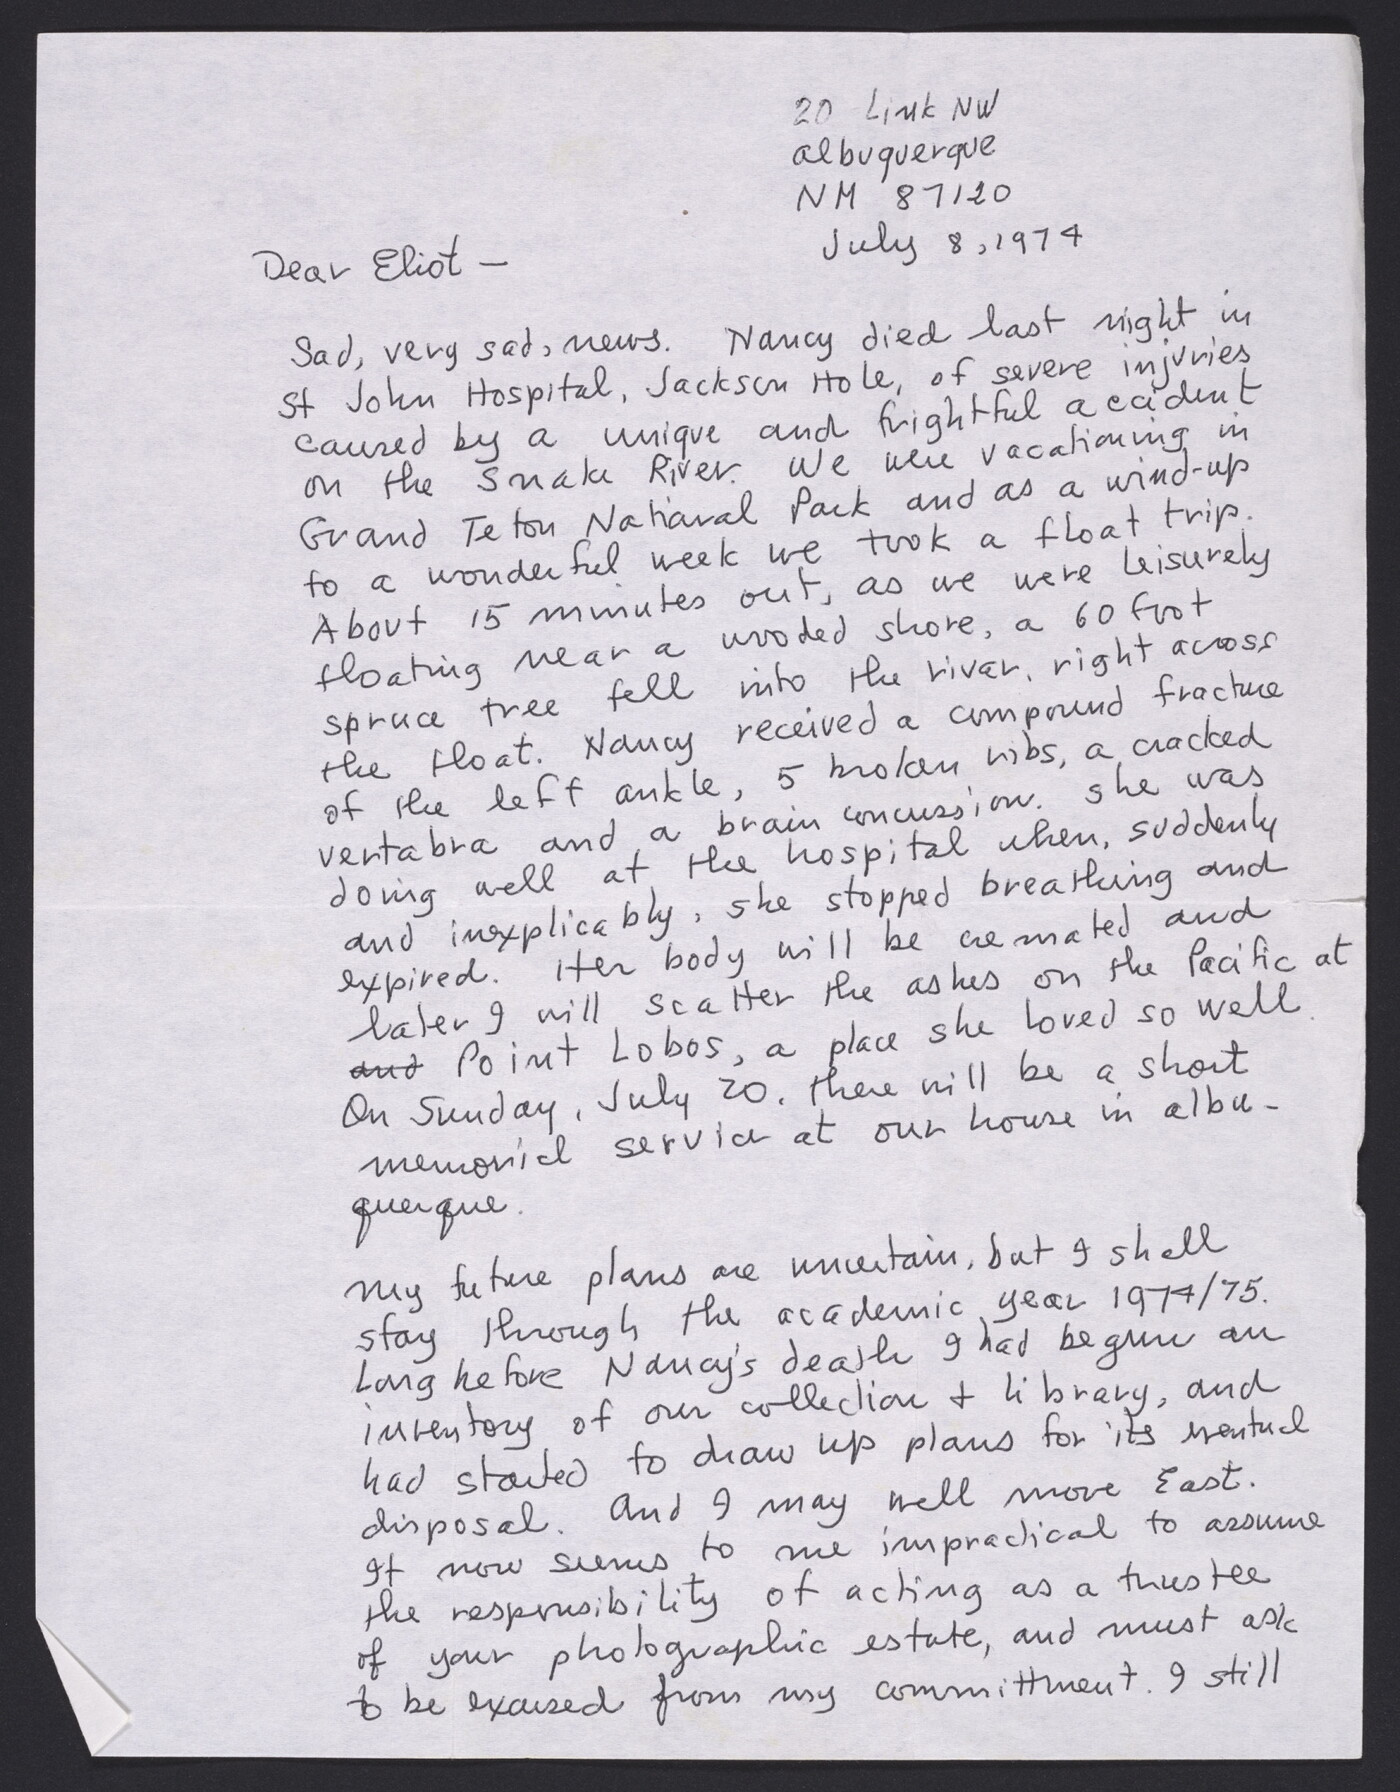 20 Link NW
Albuquerque
NM 87120
July 8, 1974
Dear Eliot —
Sad, very sad, news. Nancy died last night in
St John Hospital, Jackson Hole, of severe injuries
caused by a unique and frightful accident
on the Snake River. We were vacationing in
Grand Teton National Park and as a wind-up
to a wonderful week we took a float trip.
About 15 minutes out, as we were leisurely
floating near a wooded shore, a 60 foot
spruce tree fell into the river, right across
the float. Nancy received a compound fracture
of the left ankle, 5 broken ribs, a cracked
vertabra and a brain concussion. She was
doing well at the hospital when, suddenly
and inexplicably, she stopped breathing and
expired. Her body will be cremated and
later I will scatter the ashes on the Pacific at
and Point Lobos, a place she loved so well.
On Sunday, July 20, there will be a short
memorial service at our house in Albu-
querque.
My future plans are uncertain, but I shall
stay through the academic year 1974/75.
Long before Nancy's death I had begun an
inventory of our collection + library, and
had started to draw up plans for its eventual
disposal. And I may well move East.
It now seems to me impractical to assume
the responsibility of acting as a trustee
of your photographic estate, and must ask
to be excused from my committment. I still